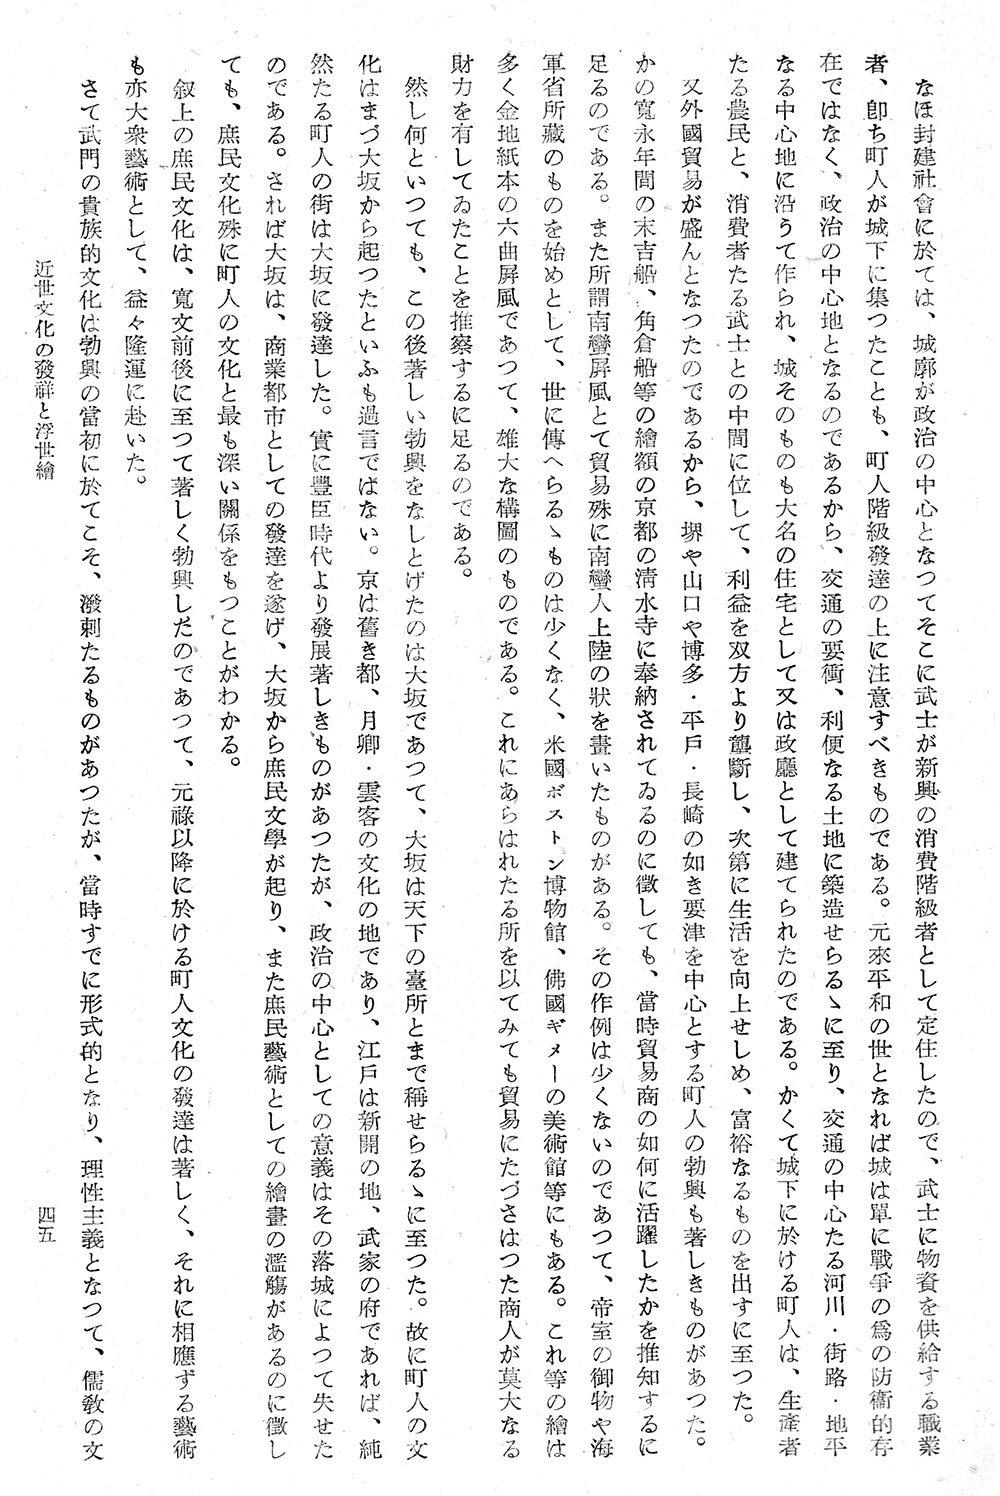 なほ封建社會に於ては、城廓が政治の中心となつてそこに武士が新興の消費階級者として定住したので、武士に物資を供給する職業
者、卽ち町人が城下に集つたことも、町人階級發達の上に注意すべきものである。元來平和の世となれば城は單に戰爭の爲の防衞的存
在ではなく、政治の中心地となるのであるから、交通の要衝、利便なる土地に築造せらるゝに至り、交通の中心たる河川・街路・地平
なる中心地に沿うて作られ、城そのものも大名の住宅として又は政廳として建てられたのである。かくて城下に於ける町人は、生產者
たる農民と、消費者たる武士との中間に位して、利益を双方より壟斷し、次第に生活を向上せしめ、富裕なるものを出すに至つた。
又外國貿易が盛んとなつたのであるから、堺や山口や博多・平戶・長崎の如き要津を中心とする町人の勃興も著しきものがあつた。
かの寬永年間の末吉船、角倉船等の繪額の京都の淸水寺に奉納されてゐるのに徵しても、當時貿易商の如何に活躍したかを推知するに
足るのである。また所謂南蠻屛風とて貿易殊に南蠻人上陸の狀を畫いたものがある。その作例は少くないのであつて、帝室の御物や海
軍省所藏のものを始めとして、世に傳へらるゝものは少くなく、米國ボストン博物館、佛國ギメーの美術館等にもある。これ等の繪は
多く金地紙本の六曲屛風であつて、雄大な構圖のものである。これにあらはれたる所を以てみても貿易にたづさはつた商人が莫大なる
財力を有してゐたことを推察するに足るのである。
然し何といつても、この後著しい勃興をなしとげたのは大坂であつて、大坂は天下の臺所とまで稱せらるゝに至つた。故に町人の文
化はまづ大坂から起つたといふも過言ではない。京は舊き都、月卿・雲客の文化の地であり、江戶は新開の地、武家の府であれば、純
然たる町人の街は大坂に發達した。實に豐臣時代より發展著しきものがあつたが、政治の中心としての意義はその落城によつて失せた
のである。されば大坂は、商業都市としての發達を遂げ、大坂から庶民文學が起り、また庶民藝術としての繪畫の濫觴があるのに徵し
ても、庶民文化殊に町人の文化と最も深い關係をもつことがわかる。
叙上の庶民文化は、寬文前後に至つて著しく勃興しだのであつて、元祿以降に於ける町人文化の發達は著しく、それに相應ずる藝術
も亦大衆藝術として、益々隆運に赴いた。
さて武門の貴族的文化は勃興の當初に於てこそ、潑剌たるものがあつたが、當時すでに形式的となり、理性主義となつて、儒敎の文
近世文化の發祥と浮世繪
四五